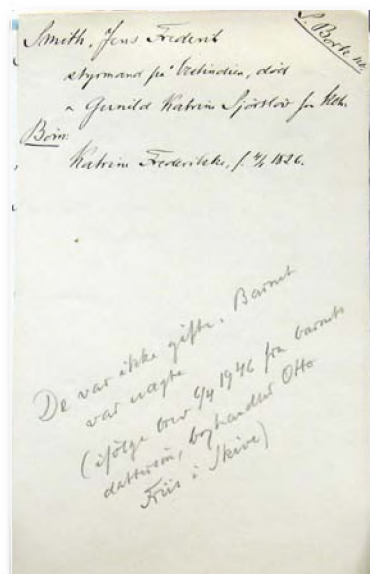 Smith, Jens Frederik
styrmand på Vestindien, død
Gunild Katrine
Børn:
Katrine Frederikke, f. 1826.
De var ikke gifte. Barnet
var uægte
(ifølge brev 6/4 1946 fra barnets
dattersøn, boghandler Otto
Friis i Skive)